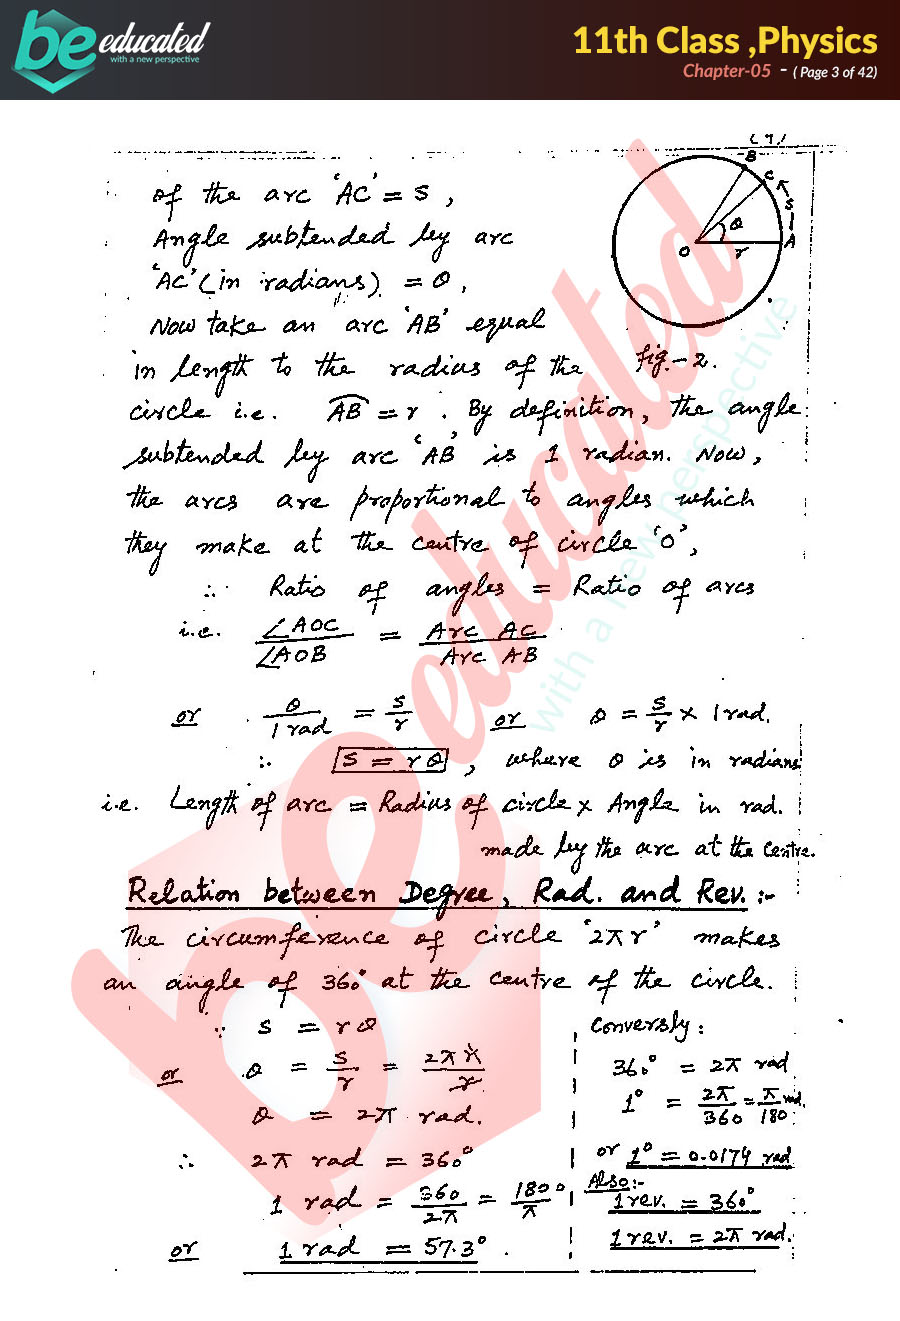 be educated
with a new perspective
11th Class ,Physics
Chapter-05 - ( Page 3 of 42)
B
C
S
θ
O
r
A
of the arc 'AC' = S,
Angle subtended by arc
'AC' (in radians) = θ,
Now take an arc 'AB' equal
in length to the radius of the
fig.-2.
circle i.e. A͡B = r. By definition, the angle
subtended by arc 'AB' is 1 radian. Now,
the arcs are proportional to angles which
they make at the centre of circle 'O',
∴ Ratio of angles = Ratio of arcs
i.e. ∠AOC / ∠AOB = Arc AC / Arc AB
or θ / 1 rad = S / r or θ = S/r × 1 rad.
∴ S = rθ, where θ is in radians
i.e. Length of arc = Radius of circle × Angle in rad.
made by the arc at the centre.
Relation between Degree, Rad. and Rev. :-
The circumference of circle '2πr' makes
an angle of 360° at the centre of the circle.
∵ S = rθ
or θ = S/r = 2πr/r
θ = 2π rad.
∴ 2π rad = 360°
1 rad = 360/2π = 180°/π
or 1 rad = 57.3°.
Conversly:
360° = 2π rad
1° = 2π/360 = π/180 rad.
or 1° = 0.0174 rad
Also:-
1 rev. = 360°
1 rev. = 2π rad.
be educated
with a new perspective